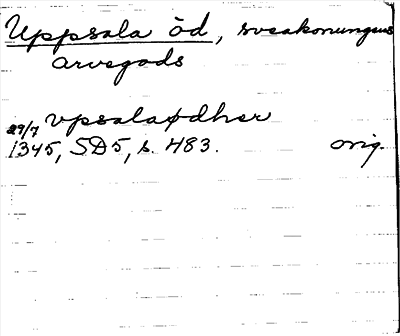 Uppsala öd, sveakonungens
arvegods
29/7 vpsalaødher
1345, SD5, s. 483. orig.